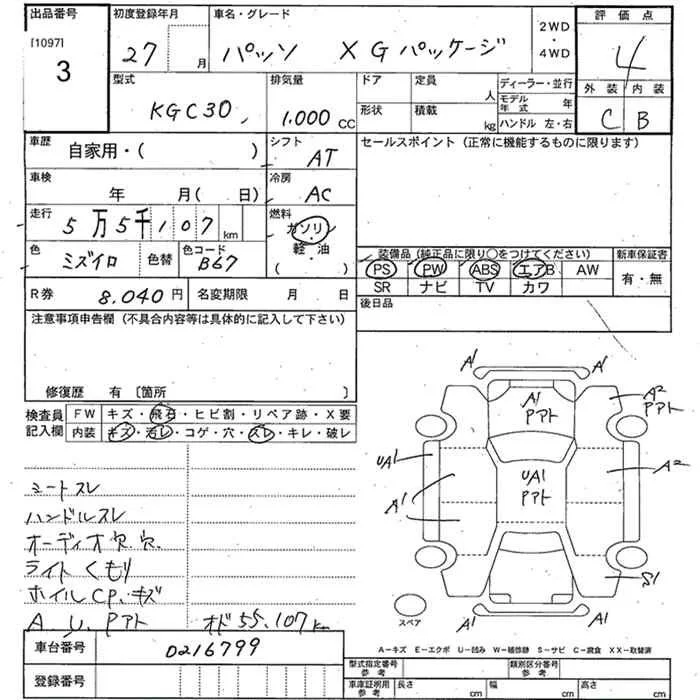 出品番号 初度登録年月 車名・グレード 2WD・4WD 評価点
[1097]
3 27 月 パッソ X G パッケージ 4
型式 排気量 ドア 定員 人 ディーラー・並行 外装 内装
KGC30 1,000 CC 形状 積載 kg モデル年式 年 C B
ハンドル 左・右
車歴 自家用・( ) シフト AT セールスポイント (正常に機能するものに限ります)
車検 年 月( 日) 冷房 AC
走行 5万5千107 km 燃料 ガソリン
軽・油
( )
色 ミズイロ 色替 色コード B67 装備品 (純正品に限り○をつけてください) 新車保証書
PS PW ABS エアB AW 有・無
SR ナビ TV カワ
R券 8,040円 名変期限 月 日 後日品
注意事項申告欄 (不具合内容等は具体的に記入して下さい)
修復歴 有 [箇所 ]
検査員記入欄 FW キズ・飛石・ヒビ割・リペア跡・X要
内装 キズ・汚レ・コゲ・穴・スレ・キレ・破レ
A1 A1
A1 アアト
A2 アアト
UA1 A2
UA1 アアト
A1
S1
A1 A1
スペア
シートスレ
ハンドルスレ
オーディオ欠.穴.
ライトくもり
ホイルCP.キズ
A.U.アアト オド55,107km
A-キズ E-エクボ U-凹み W-補修跡 S-サビ C-腐食 XX-取替済
車台番号 0216799
登録番号
型式指定番号 参考 類別区分番号 参考
車庫証明用 参考 長さ cm 幅 cm 高さ cm